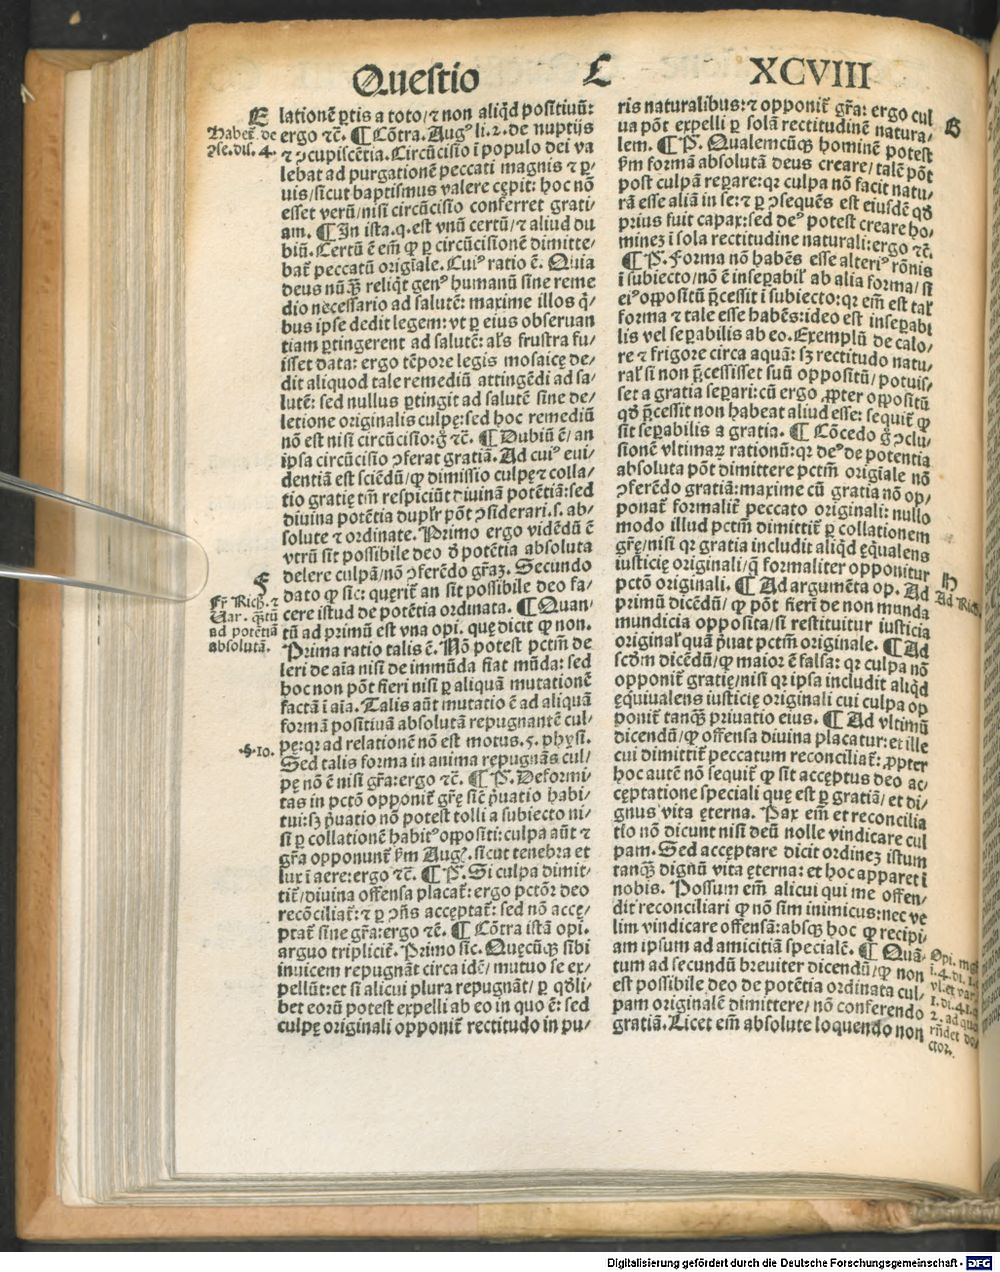 Questio L XCVIII
E
lationē ꝑtis a toto/ ⁊ non aliq̄d positiuū:
Habet᷑ de
ꝯse. dis. 4.
ergo ⁊c̄. ¶ Cōtra. Augꝰ li. 2. de nuptijs
⁊ ꝯcupiscētia. Circūcisio ī populo dei va
lebat ad purgationē peccati magnis ⁊ ꝑ-
uis/ sicut baptismus valere cępit: hoc nō
esset verū/ nisi circūcisio conferret grati/
am. ¶ In ista. q. est vnū certū/ ⁊ aliud du
biū. Certū ē em̄ ꝙ ꝑ circūcisionē dimitte/
bat᷑ peccatū origīale. Cuiꝰ ratio ē. Quia
deus nūꝙ̄ reliq̄t genꝰ humanū sine reme
dio necessario ad salutē: maxime illos q̄/
bus ipse dedit legem: vt ꝑ eius obseruan
tiam ꝑtingerent ad salutē: al's frustra fu/
isset data: ergo tēpore legis mosaicę de/
dit aliquod tale remediū attingēdi ad sa/
lutē: sed nullus ꝑtingit ad salutē sine de/
letione originalis culpę: sed hoc remediū
nō est nisi circūcisio: g̊ ⁊c̄. ¶ Dubiū ē/ an
ipsa circūcisio ꝯferat gratiā. Ad cuiꝰ eui/
dentiā est sciēdū/ ꝙ dimissio culpę ⁊ colla/
tio gratię tm̄ respiciūt diuinā potētiā: sed
diuina potētia dupl'r pōt ꝯsiderari. s. ab/
solute ⁊ ordinate. Primo ergo vidēdū ē
vtrū sit possibile deo d̄ potētia absoluta
delere culpā/ nō ꝯferēdo grāꝫ. Secundo
F
dato ꝙ sic: querit᷑ an sit possibile deo fa/
Fr̄ Rich. ⁊
Var. q̄stū
ad potētiā
absolutā.
cere istud de potētia ordinata. ¶ Quan/
tū ad primū est vna opi. quę dicit ꝙ non.
Prima ratio talis ē. Nō potest pctm̄ de
leri de aīa nisi de immūda fiat mūda: sed
hoc non pōt fieri nisi ꝑ aliquā mutationē
factā ī aīa. Talis aūt mutatio ē ad aliquā
formā positiuā absolutā repugnantē cul/
pę: qꝛ ad relationē nō est motus. 5. physi.
·§·10.
Sed talis forma in anima repugnās cul/
pę nō ē nisi gr̄a: ergo ⁊c̄. ¶ P̄. Deformi/
tas in pctō opponit᷑ gr̄ę siē p̄uatio habi/
tui: sꝫ p̄uatio nō potest tolli a subiecto ni/
si ꝑ collationē habitꝰ oppositi: culpa aūt ⁊
gr̄a opponunt᷑ s̄m Augꝰ. sicut tenebra et
lux ī aere: ergo ⁊c̄. ¶ P̄. Si culpa dimit/
tit᷑/ diuina offensa placat᷑: ergo pctōr deo
recōciliat᷑: ⁊ ꝑ ꝯn̄s accęptat᷑: sed nō accę/
ptat᷑ sine gr̄a: ergo ⁊c̄. ¶ Cōtra istā opi.
arguo triplicit᷑. Primo sic. Quęcūqꝫ sibi
inuicem repugnāt circa idē/ mutuo se ex/
pellūt: et si alicui plura repugnāt/ ꝑ qdli/
bet eorū potest expelli ab eo in quo ē: sed
culpę originali opponit᷑ rectitudo in pu/
ris naturalibus: ⁊ opponit᷑ gr̄a: ergo cul
G
ua pōt expelli ꝑ solā rectitudinē natura/
lem. ¶ P̄. Qualemcūqꝫ hominē potest
s̄m formā absolutā deus creare/ talē pōt
post culpā reparare: qꝛ culpa nō facit natu/
rā esse aliā in se: ⁊ ꝑ ꝯsequēs est eiusdē qd
prius fuit capax: sed deꝰ potest creare ho/
mineꝫ ī sola rectitudine naturali: ergo ⁊c̄.
¶ P̄. Forma nō habēs esse alteriꝰ rōnis
ī subiecto/ nō ē insepabil' ab alia forma/ si
eiꝰ oppositū p̄cessit ī subiecto: qꝛ em̄ est tal'
forma ⁊ tale esse habēs: ideo est insepabi
lis vel sepabilis ab eo. Exemplū de calo/
re ⁊ frigore circa aquā: sꝫ rectitudo natu/
ral' si non p̄cessisset suū oppositū/ potuis/
set a gratia separi: cū ergo ꝓpter oppositū
qd p̄cessit non habeat aliud esse: sequit᷑ ꝙ
sit sepabilis a gratia. ¶ Cōcedo g̊ ꝯclu/
sionē vltimaꝝ rationū: qꝛ deꝰ de potentia
absoluta pōt dimittere pctm̄ origīale nō
ꝯferēdo gratiā: maxime cū gratia nō op/
ponat᷑ formalit᷑ peccato originali: nullo
modo illud pctm̄ dimittit᷑ ꝑ collationem
gr̄ę/ nisi qꝛ gratia includit aliq̄d ęqualens
iusticię originali/ q̄ formaliter opponitur
H
pctō originali. ¶ Ad argumēta op. Ad
Ad Rich.
primū dicēdū/ ꝙ pōt fieri de non munda
mundicia opposita/ si restituitur iusticia
original' quā p̄uat pctm̄ originale. ¶ Ad
scdm dicēdū/ ꝙ maior ē falsa: qꝛ culpa nō
opponit᷑ gratię/ nisi qꝛ ipsa includit aliq̄d
ęquiualens iusticię originali cui culpa op
ponit᷑ tanqꝫ priuatio eius. ¶ Ad vltimū
dicendū/ ꝙ offensa diuina placatur: et ille
cui dimittit᷑ peccatum reconciliat᷑: ꝓpter
hoc autē nō sequit᷑ ꝙ sit accęptus deo ac/
cęptatione speciali quę est ꝑ gratiā/ et di/
gnus vita ęterna. Pax em̄ et reconcilia
tio nō dicunt nisi deū nolle vindicare cul
pam. Sed accęptare dicit ordineꝫ istum
tanqꝫ dignū vita ęterna: et hoc apparet ī
nobis. Possum em̄ alicui qui me offen/
dit reconciliari ꝙ nō sim inimicus: nec ve
lim vindicare offensā: absqꝫ hoc ꝙ recipi/
am ipsum ad amicitiā specialē. ¶ Quā/
Opi. mgr̄i
i. 4. di. 1. ⁊
vl. et var.
1. di. 4. 1. q̄
2. ad quā
rn̄det do/
ctor.
tum ad secundū breuiter dicendū/ ꝙ non
est possibile deo de potētia ordinata cul/
pam originalē dimittere/ nō conferendo
gratiā. Licet em̄ absolute loquendo non
Digitalisierung gefördert durch die Deutsche Forschungsgemeinschaft - DFG